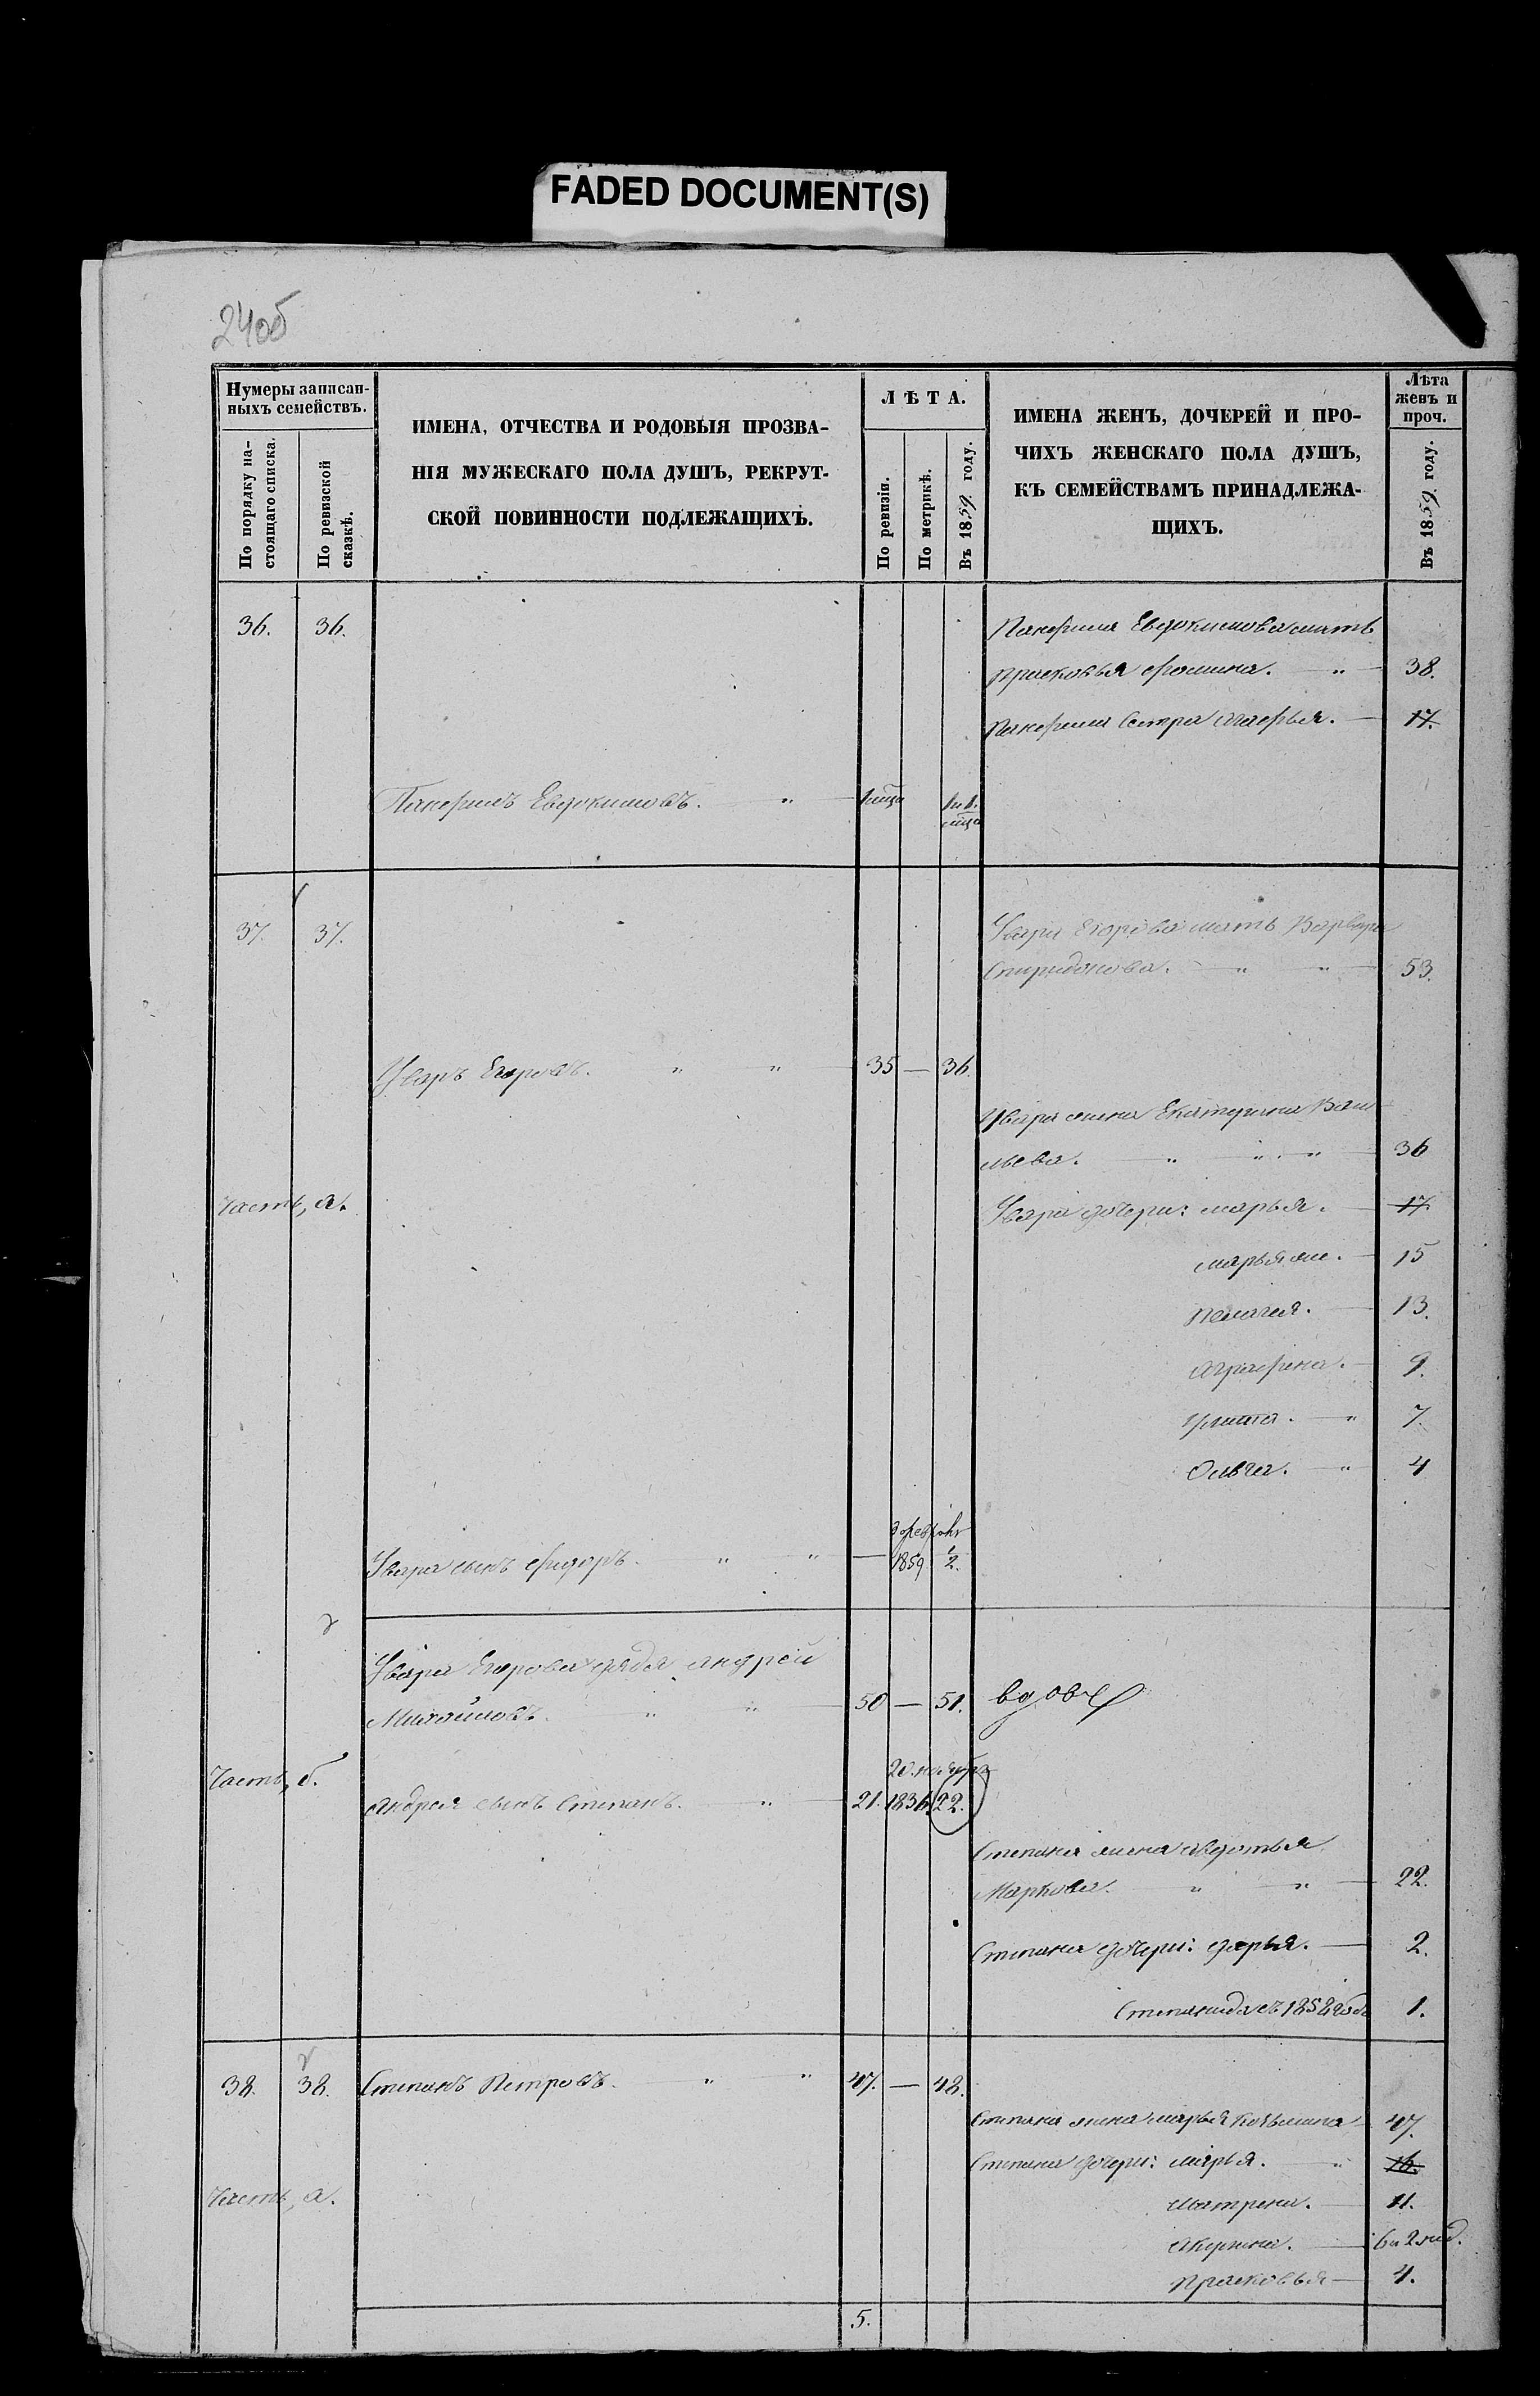 FADED DOCUMENT(S)
24об
Нумеры записан-
ныхъ семействъ.
По порядку на-
стоящаго списка.
По ревизской
сказкѣ.
ИМЕНА, ОТЧЕСТВА И РОДОВЫЯ ПРОЗВА-
НІЯ МУЖЕСКАГО ПОЛА ДУШЪ, РЕКРУТ-
СКОЙ ПОВИННОСТИ ПОДЛЕЖАЩИХЪ.
ЛѢТА.
По ревизіи.
По метрикѣ.
Въ 1859 году.
ИМЕНА ЖЕНЪ, ДОЧЕРЕЙ И ПРО-
ЧИХЪ ЖЕНСКАГО ПОЛА ДУШЪ,
КЪ СЕМЕЙСТВАМЪ ПРИНАДЛЕЖА-
ЩИХЪ.
Лѣта
женъ и
проч.
Въ 1859 году.
36. 36. Панфила Евдокимова мать
Прасковья Фомина. " 38.
Панфила сестра Агафья. 17.
Панфилъ Евдокимовъ. " 1 мца 1 и 1.
мца
37. 37. Увара Егорова мать Варвара
Спиридонова. " " 53.
Уваръ Егоровъ. " " 35 — 36.
Увара жена Екатерина Васи-
льева. " " " 36
Часть, а. Увара дочери: Марья. 17.
Марья же. 15
Пелагея. 13.
Аграфена. 9.
Улита. " 7.
Ольга. " 4
Увара сынъ Фидоръ. " " — 1859 1/2.
Увара Егорова дядя Андрей
Михайловъ. " " 50 — 51. вдовъ
Часть, б.
20. ноября
Андрея сынъ Степанъ. " 21. 1836 22.
Степана жена Авдотья
Маркова. " " 22.
Степана дочери: Дарья. 2.
Степанида съ 1858 года 1.
38. 38. Степанъ Петровъ. " " 47. — 48.
Степана жена Марья Козьмина 47.
Степана дочери: Марья. " 16.
Часть, а. Матрена. 11.
Акулина. 6 и 2 нед.
Прасковья 4.
5.